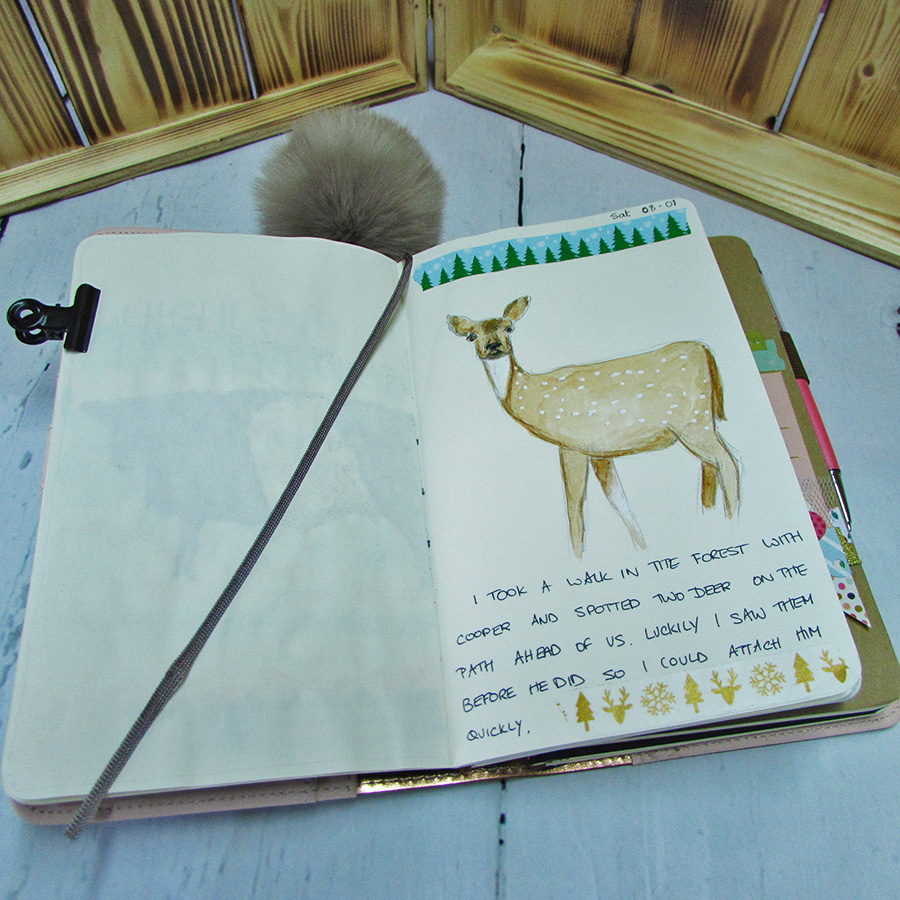 Sat 08-01
I TOOK A WALK IN THE FOREST WITH
COOPER AND SPOTTED TWO DEER ON THE
PATH AHEAD OF US. LUCKILY I SAW THEM
BEFORE HE DID SO I COULD ATTACH HIM
QUICKLY.